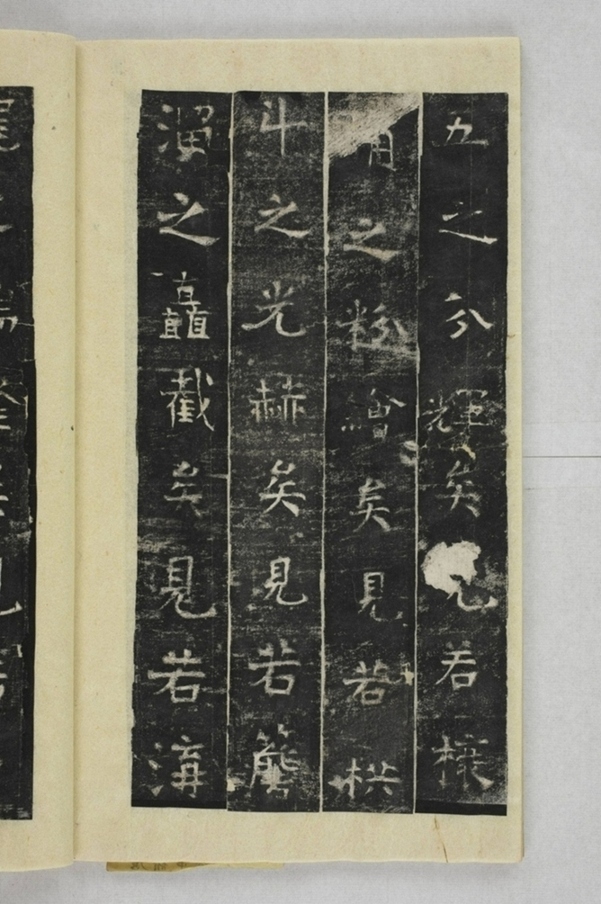 五之分輝矣見若
明之粉繪矣見若栱
斗之光赫矣見若簷
溜之矗截矣見若溝